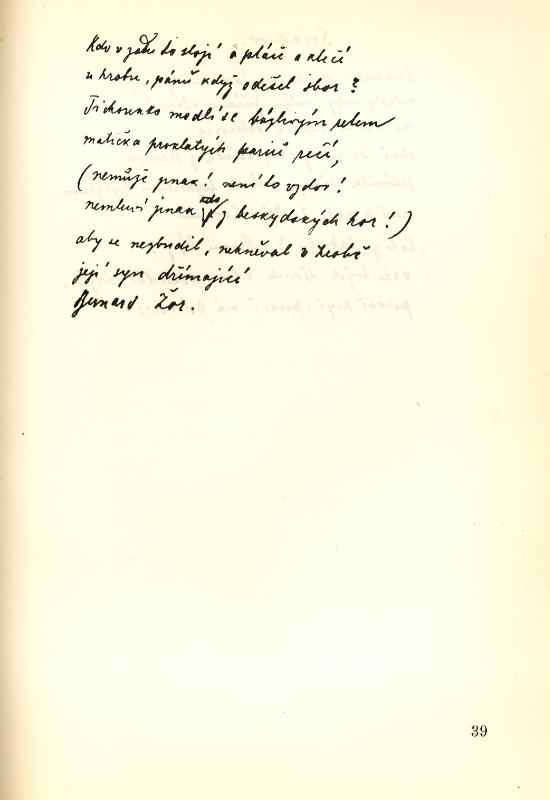 Kdo v zadu to stojí a pláče a klečí
u hrobu, pánů když odešel sbor?
Tichounko modlí se bázlivým retem
matička proklatých pariů řečí,
(nemůže jinak! není to vzdor!
nemluví jinak kdo z beskydských hor!)
aby se nezbudil, nehněval v hrobě
její syn dřímající
Bernard Žor.
39